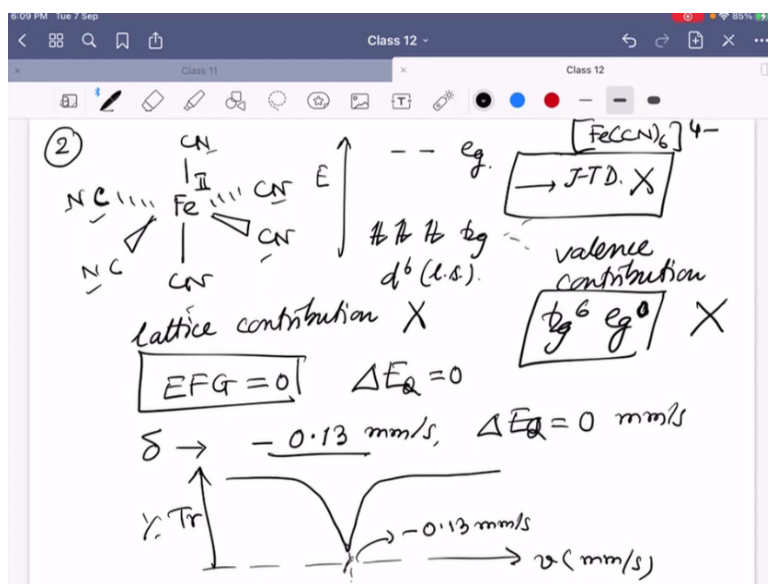 6:09 PM Tue 7 Sep
85%
Class 12
Class 11
Class 12
②
CN
NC
II
Fe
CN
NC
CN
CN
E
eg.
[Fe(CN)6]4-
→ J-TD. X
t2g
d6 (l.s.).
valence
contribution
lattice contribution X
t2g6 eg0 X
EFG = 0
ΔEQ = 0
δ → - 0.13 mm/s, ΔEQ = 0 mm/s
% Tr
-0.13 mm/s
v (mm/s)